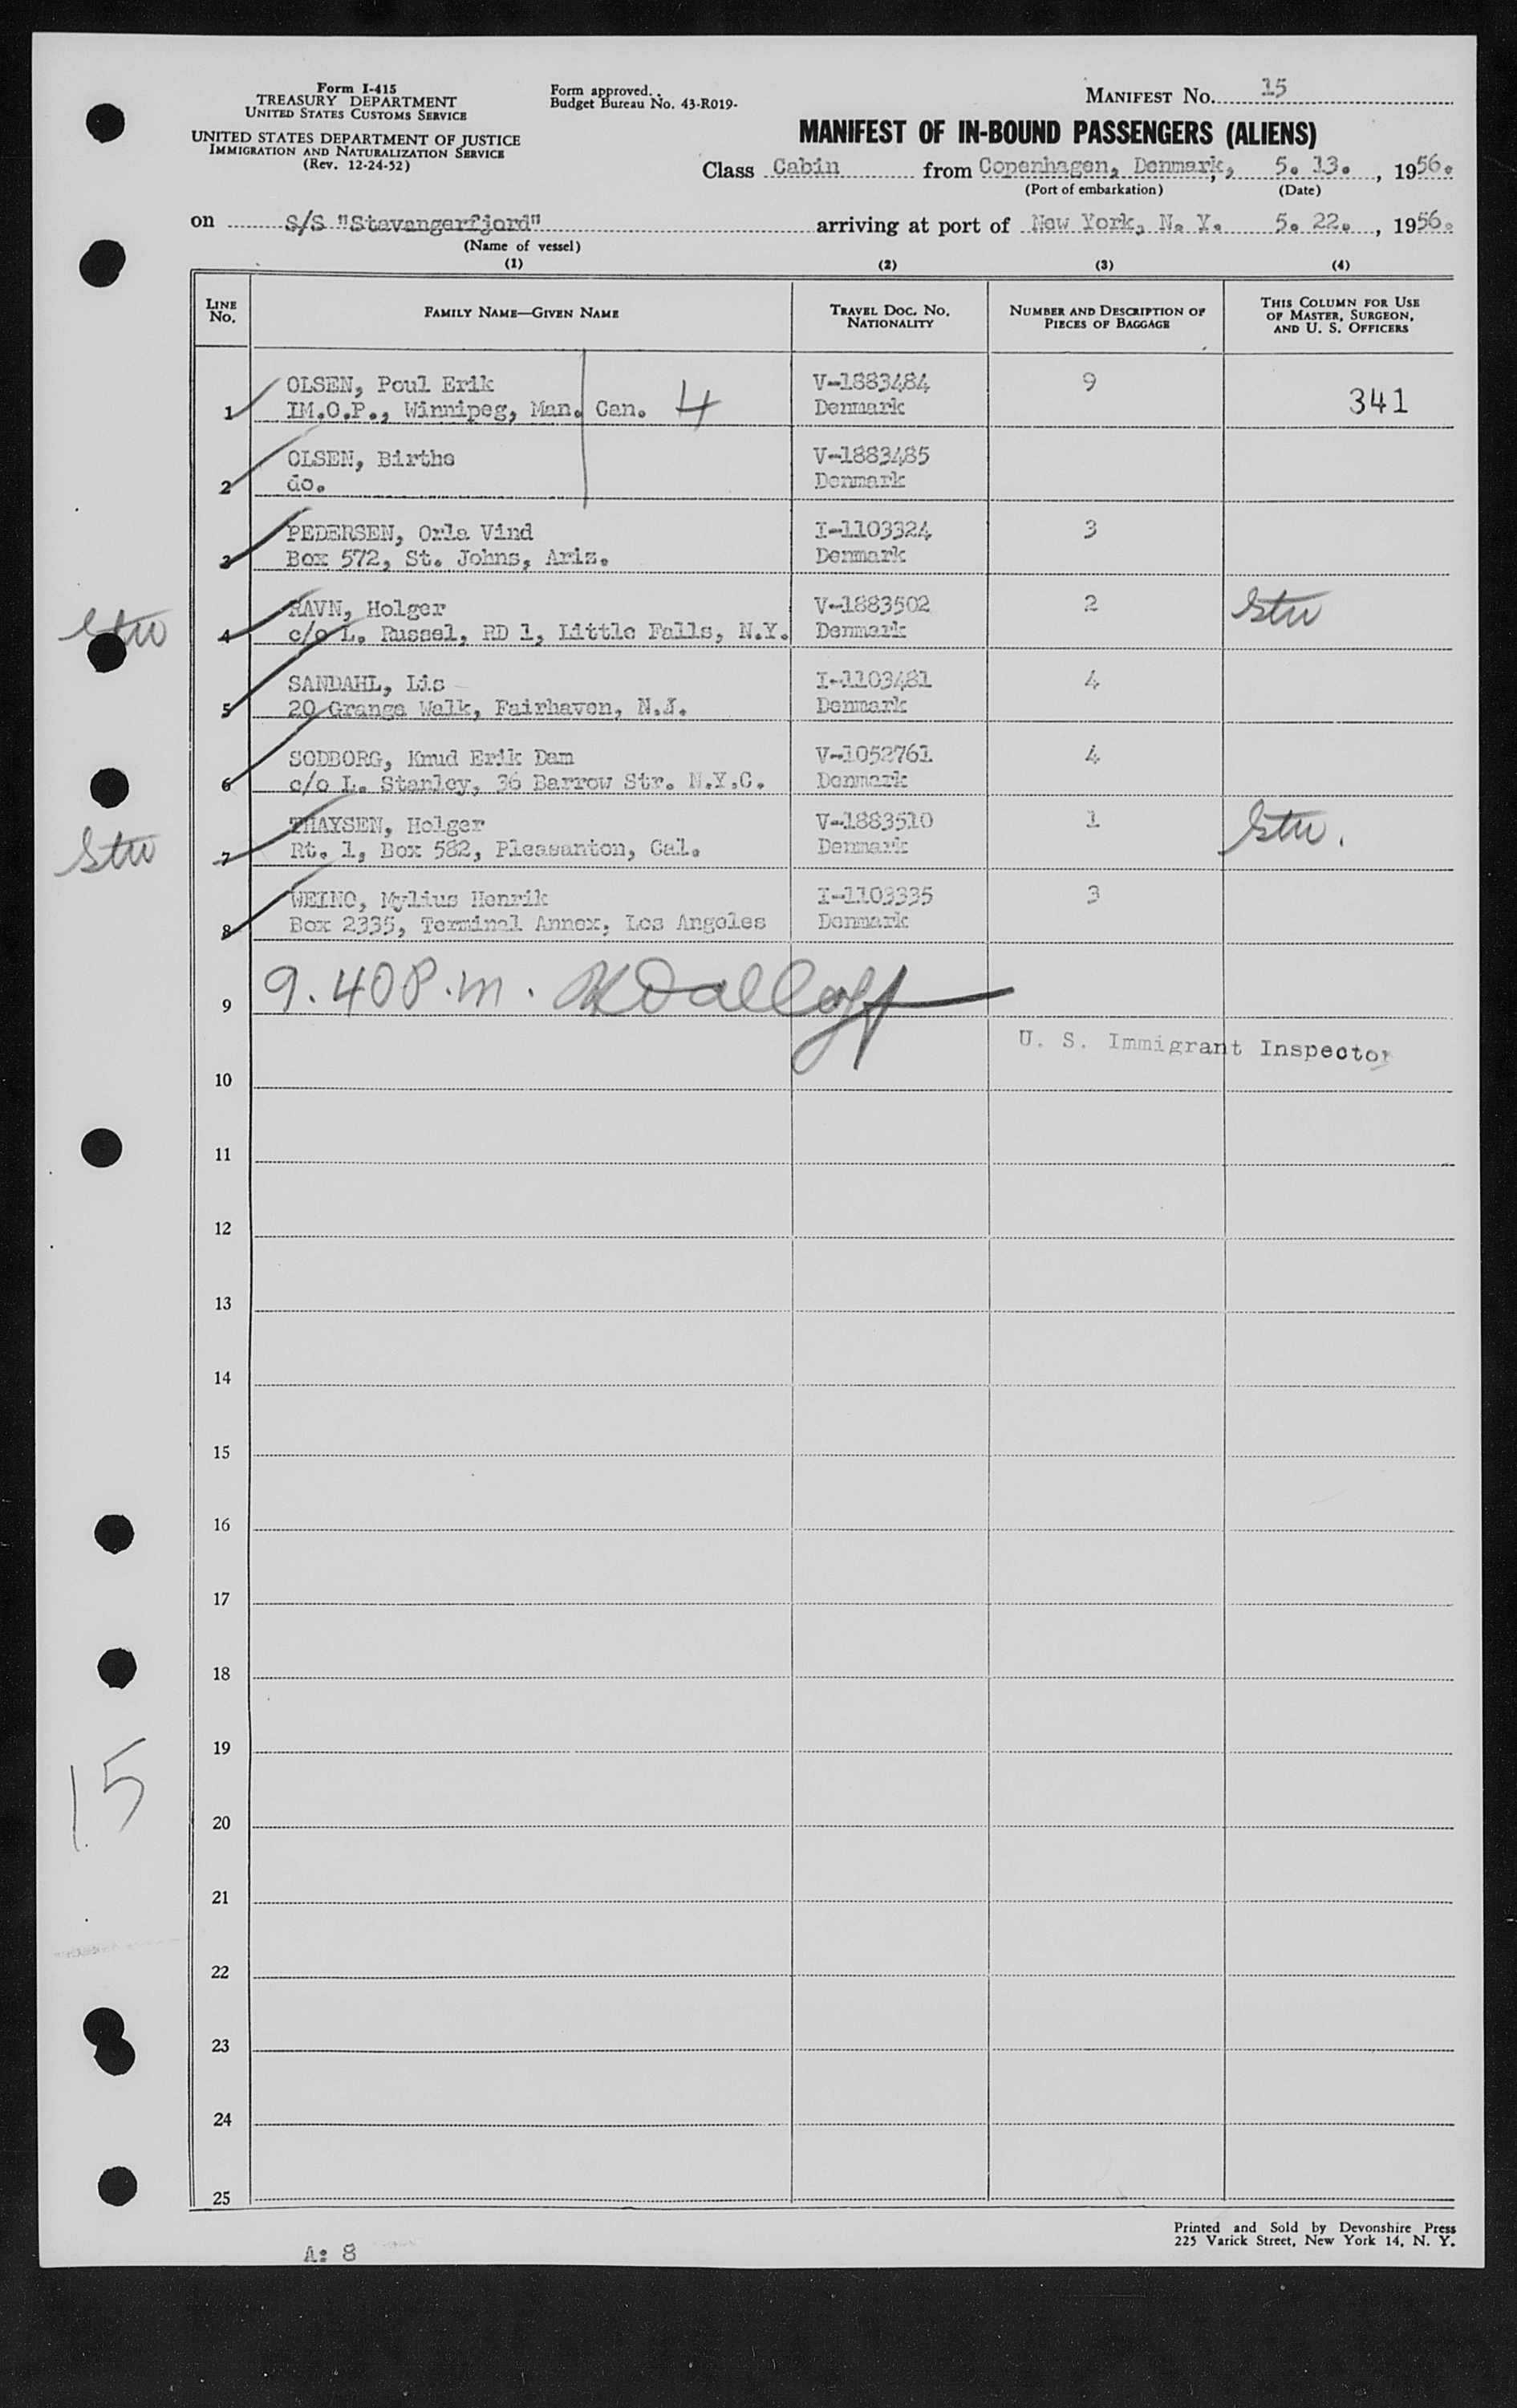 Form I-415
TREASURY DEPARTMENT
UNITED STATES CUSTOMS SERVICE
UNITED STATES DEPARTMENT OF JUSTICE
IMMIGRATION AND NATURALIZATION SERVICE
(Rev. 12-24-52)
Form approved.
Budget Bureau No. 43-R019-
MANIFEST No. 15
MANIFEST OF IN-BOUND PASSENGERS (ALIENS)
Class Cabin from Copenhagen, Denmark, 5. 13. , 1956.
(Port of embarkation) (Date)
on S/S "Stavangerfjord" arriving at port of New York, N. Y. 5. 22. , 1956.
(Name of vessel)
(1) (2) (3) (4)
LINE No. FAMILY NAME—GIVEN NAME TRAVEL DOC. No. NATIONALITY NUMBER AND DESCRIPTION OF PIECES OF BAGGAGE THIS COLUMN FOR USE OF MASTER, SURGEON, AND U. S. OFFICERS
OLSEN, Poul Erik V-1883484 9
1 IM.O.P., Winnipeg, Man. Can. 4 Denmark 341
OLSEN, Birthe V-1883485
2 do. Denmark
PEDERSEN, Orla Vind I-1103324 3
3 Box 572, St. Johns, Ariz. Denmark
RAVN, Holger V-1883502 2 Stu
Stu 4 c/o L. Russel, RD 1, Little Falls, N.Y. Denmark
SANDAHL, Lis I-1103481 4
5 20 Grange Walk, Fairhaven, N.J. Denmark
SODBORG, Knud Erik Dam V-1052761 4
6 c/o L. Stanley, 36 Barrow Str. N.Y.C. Denmark
THAYSEN, Holger V-1883510 1 Stu.
Stu 7 Rt. 1, Box 582, Pleasanton, Cal. Denmark
WEINO, Mylius Henrik I-1103335 3
8 Box 2335, Terminal Annex, Los Angeles Denmark
9 9.40 P.m.
U. S. Immigrant Inspector
10
11
12
13
14
15
16
17
18
19
15
20
21
22
23
24
25
A: 8
Printed and Sold by Devonshire Press
225 Varick Street, New York 14, N. Y.